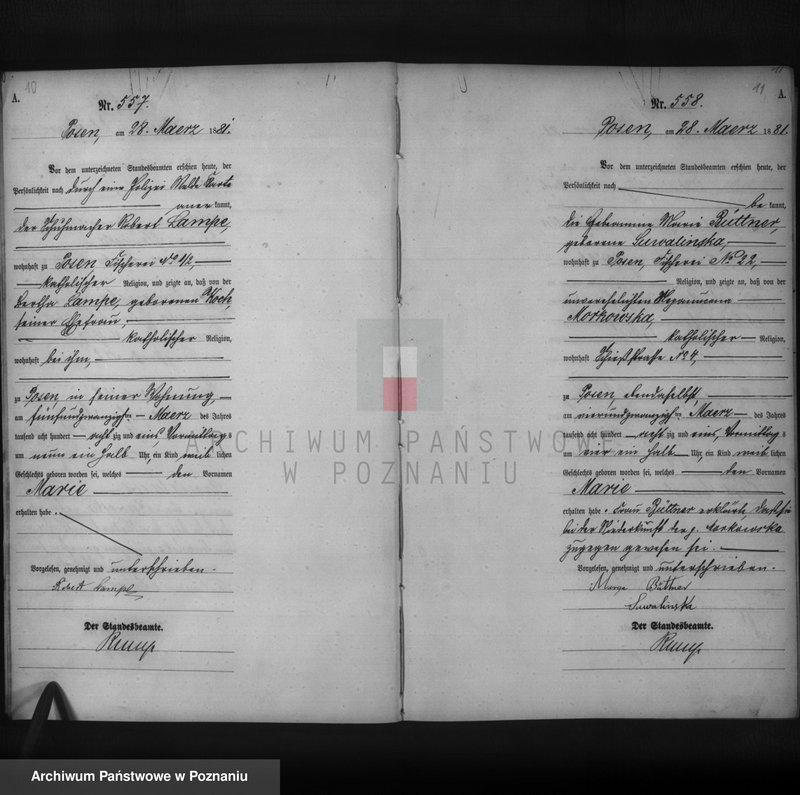 10
A.
Nr. 557.
Posen, am 28. Maerz 1881.
Vor dem unterzeichneten Standesbeamten erschien heute, der
Persönlichkeit nach durch eine Polizei Melde Karte
anerkannt,
der Schuhmacher Robert Lampe,
wohnhaft zu Posen Fischerei No
katholischer Religion, und zeigte an, daß von der
Bertha Lampe, geborenen Koch,
seiner Ehefrau,
katholischer Religion,
wohnhaft bei ihm,
zu Posen in seiner Wohnung,
am fünfundzwanzigten Maerz des Jahres
tausend acht hundert achtzig und eins Vormittags
um neun ein halb Uhr, ein Kind weiblichen
Geschlechts geboren worden sei, welches den Vornamen
Marie
erhalten habe.
Vorgelesen, genehmigt und unterschrieben.
Robert Lampe
Der Standesbeamte.
11
A.
Nr. 558.
Posen, am 28. Maerz 1881.
Vor dem unterzeichneten Standesbeamten erschien heute, der
Persönlichkeit nach
bekannt,
die Hebamme Marie Büttner,
geborene Suwalinska,
wohnhaft zu Posen, Fischerei No 22,
Religion, und zeigte an, daß von der
unverehelichten
Morkowska,
katholischer Religion,
wohnhaft Schießstraße No 4,
zu Posen, ebendaselbst,
am vierundzwanzigten Maerz des Jahres
tausend acht hundert achtzig und eins Vormittags
um vier ein halb Uhr, ein Kind weiblichen
Geschlechts geboren worden sei, welches den Vornamen
Marie
erhalten habe. Frau Büttner erklärte, dass sie
bei der Niederkunft der p. Morkowska
zugegen gewesen sei.
Vorgelesen, genehmigt und unterschrieben.
Büttner
Suwalinska
Der Standesbeamte.
ARCHIWUM PAŃSTWOWE
W POZNANIU
Archiwum Państwowe w Poznaniu